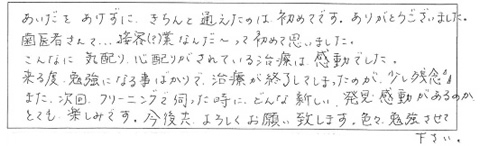 あいだを あけずに、きちんと通えたのは 初めてです。ありがとうございました。
歯医者さんて… 接客(?)業なんだ〜って初めて思いました。
こんなに 気配り、心配りがされている治療は、感動でした。
来る度、勉強になる事ばかりで、治療が終了してしまったのが、少し残念。
また、次回、クリーニングで伺った時に、どんな新しい、発見、感動があるのか
とても、楽しみです。今後共、よろしくお願い致します。色々、勉強させて
下さい。